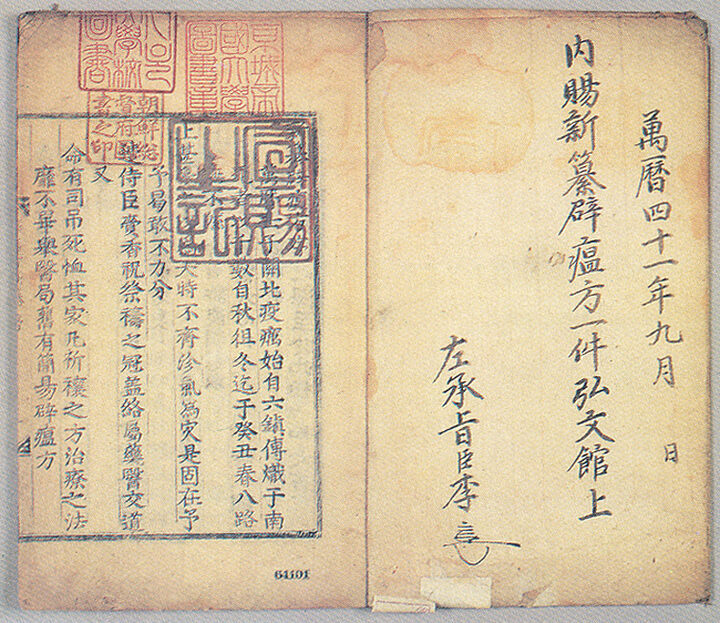 萬曆四十一年九月 日
內賜新纂辟瘟方一件弘文館上
左承旨臣李
子關北疫癘始自六鎮傳熾于南
數自秋徂冬迄于癸丑春八路
上
天時不齊沴氣為灾是固在予
予曷敢不力分
遣侍臣齎香祝祭禱之冠盖絡屬藥醫交道
又
命有司吊死恤其家凡祈禳之方治療之法
靡不畢舉醫局舊有簡易辟瘟方
宣賜之記
京城帝國大學圖書章
朝鮮總督府圖書之印
大學校圖書
64101